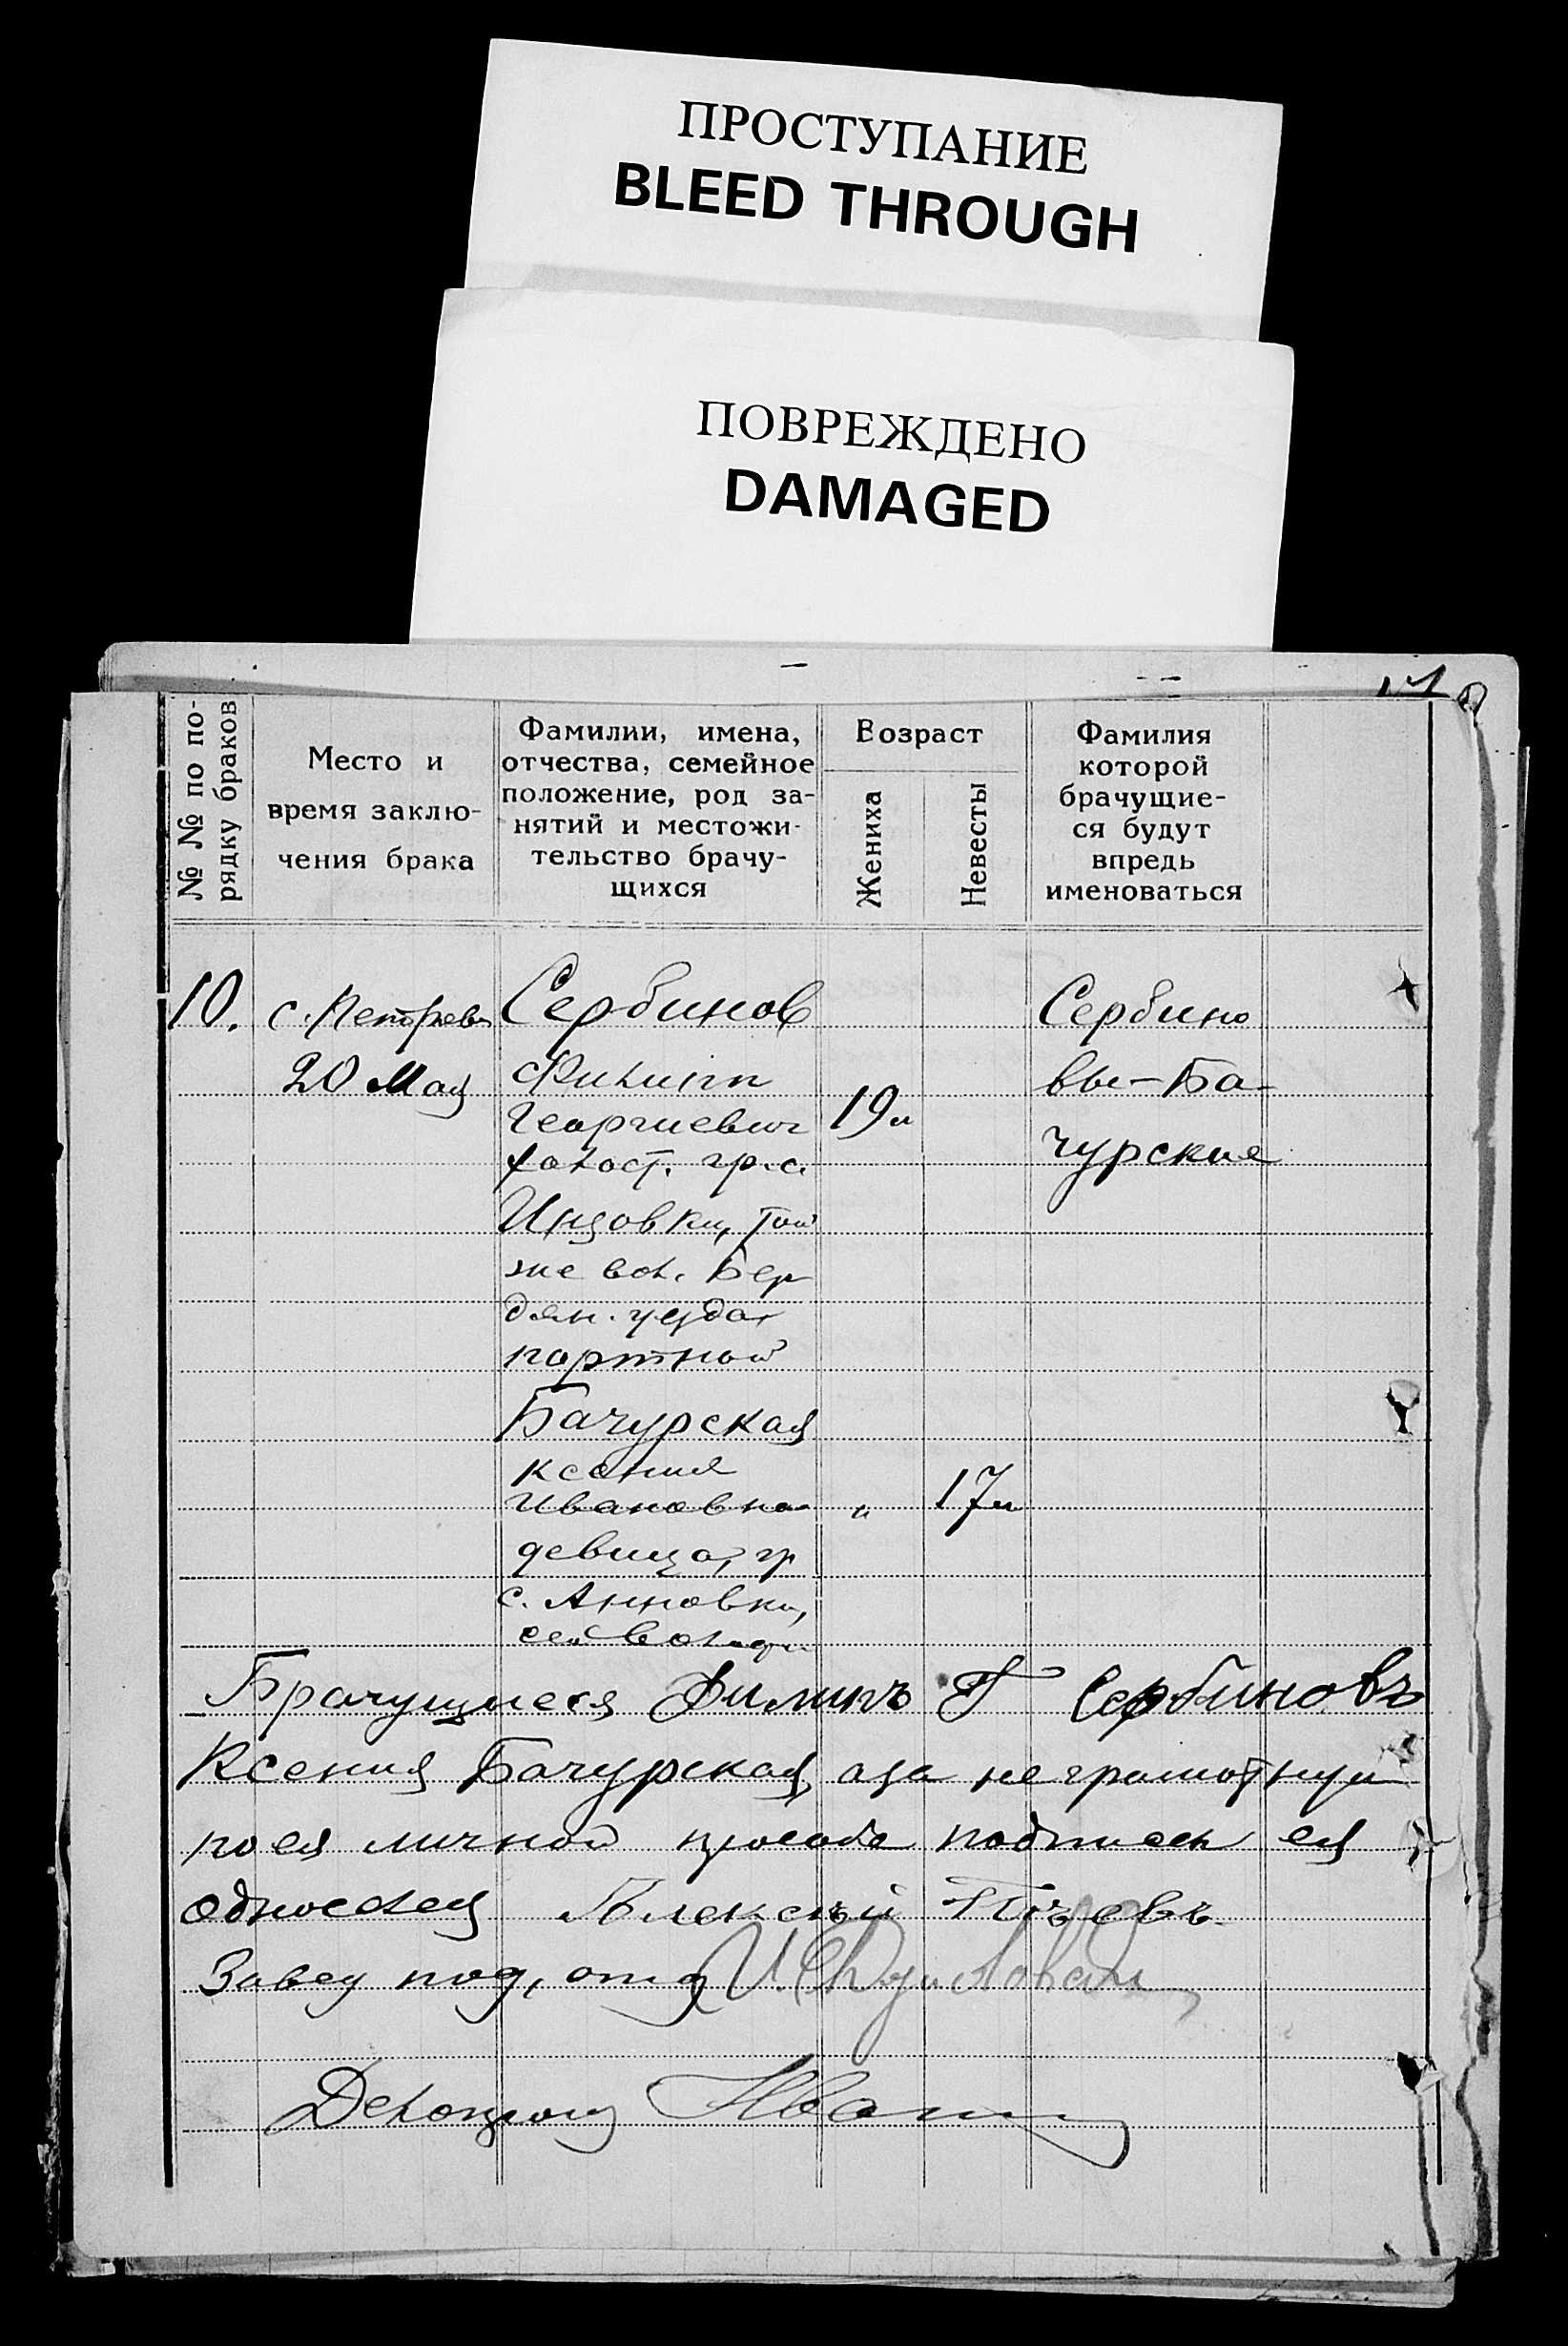 ПРОСТУПАНИЕ
BLEED THROUGH
ПОВРЕЖДЕНО
DAMAGED
№ № по по-
рядку браков
Место и
время заклю-
чения брака
Фамилии, имена,
отчества, семейное
положение, род за-
нятий и местожи-
тельство брачу-
щихся
Возраст
Жениха
Невесты
Фамилия
которой
брачущие-
ся будут
впредь
именоваться
10.
с. Петровка
20 Мая
Сербинов
Филипп
Георгиевич
холост. гр. с.
Инзовки, той
же вол. Бер
дян. уезда,
портной
19 л
Сербино
вы-Ба-
чурские
Бачурская
Ксения
Ивановна
девица, гр
с. Анновки,
сей волости
"
17 л
Брачущиеся Филипъ Г Сербиновъ
Ксения Бачурская, а за неграмотную
по ея личной просьбе подписал ея
односелец Алексъй
Завед под, отд
Делопроиз